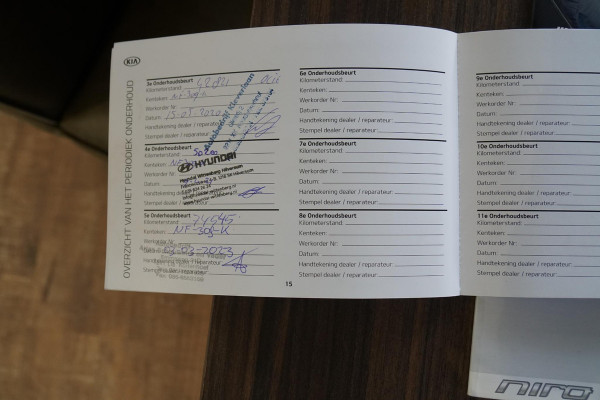 KIA
OVERZICHT VAN HET PERIODIEK ONDERHOUD
3e Onderhoudsbeurt
Kilometerstand:
Kenteken:
Werkorder Nr:
Datum: 15-01-2020
Handtekening dealer / reparateur
Stempel dealer / reparateur
4e Onderhoudsbeurt
Kilometerstand:
Kenteken:
Werkorder Nr:
Datum:
Handtekening
Stempel dealer
HYUNDAI
5e Onderhoudsbeurt
Kilometerstand: 74545
Kenteken: NF-309-K
Werkorder Nr:
Datum: 03-03-2023
Handtekening dealer / reparateur
Stempel dealer / reparateur
6e Onderhoudsbeurt
Kilometerstand:
Kenteken:
Werkorder Nr:
Datum:
Handtekening dealer / reparateur
Stempel dealer / reparateur
7e Onderhoudsbeurt
Kilometerstand:
Kenteken:
Werkorder Nr:
Datum:
Handtekening dealer / reparateur
Stempel dealer / reparateur
8e Onderhoudsbeurt
Kilometerstand:
Kenteken:
Werkorder Nr:
Datum:
Handtekening dealer / reparateur
Stempel dealer / reparateur
15
9e Onderhoudsbeurt
Kilometerstand:
Kenteken:
Werkorder Nr:
Datum:
Handtekening dealer / reparateur
Stempel dealer / reparateur
10e Onderhoudsbeurt
Kilometerstand:
Kenteken:
Werkorder Nr:
Datum:
Handtekening dealer / reparateur
Stempel dealer / reparateur
11e Onderhoudsbeurt
Kilometerstand:
Kenteken:
Werkorder Nr:
Datum:
Handtekening dealer / reparateur
Stempel dealer / reparateur
niro